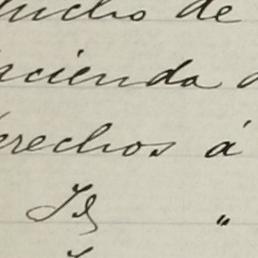 ucho de
acienda
erechos á
Id "